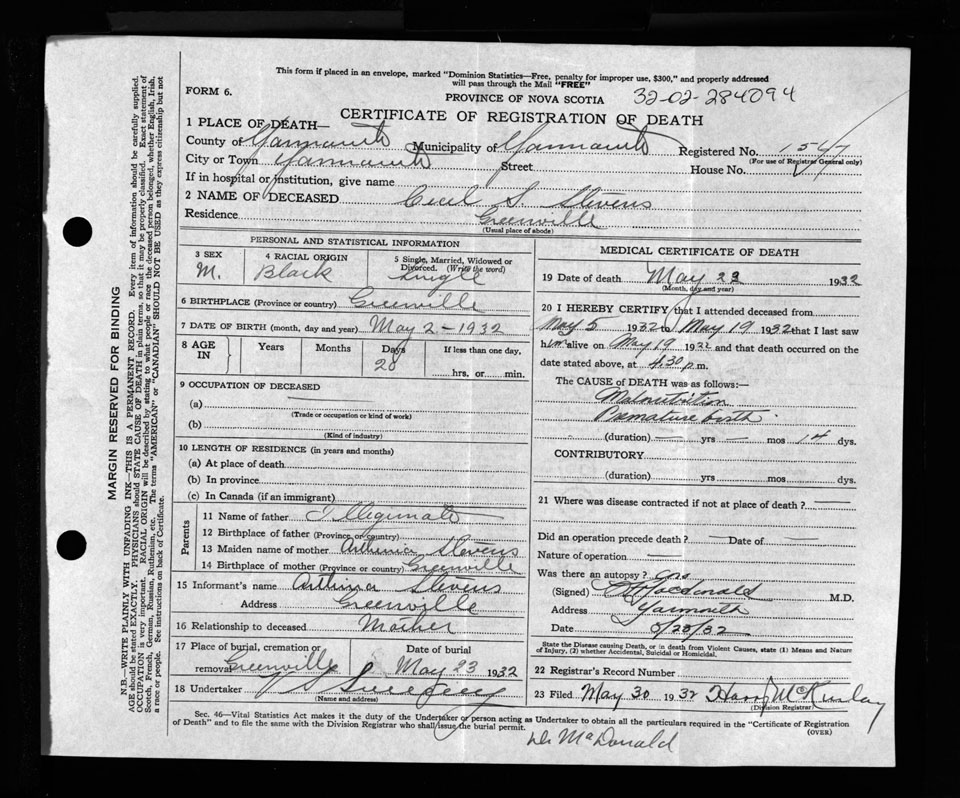 This form if placed in an envelope, marked "Dominion Statistics—Free, penalty for improper use, $300," and properly addressed
will pass through the Mail "FREE"
FORM 6.
PROVINCE OF NOVA SCOTIA 32-02-284094
CERTIFICATE OF REGISTRATION OF DEATH
1 PLACE OF DEATH—
County of Yarmouth Municipality of Yarmouth Registered No. 1547
(For use of Registrar General only)
City or Town Yarmouth Street House No.
If in hospital or institution, give name
2 NAME OF DECEASED Cecil S. Stevens
Residence Greenville
(Usual place of abode)
PERSONAL AND STATISTICAL INFORMATION
3 SEX 4 RACIAL ORIGIN 5 Single, Married, Widowed or
Divorced. (Write the word)
M. Black Single
6 BIRTHPLACE (Province or country) Greenville
7 DATE OF BIRTH (month, day and year) May 2-1932
8 AGE IN Years Months Days If less than one day,
28 hrs. or min.
9 OCCUPATION OF DECEASED
(a)
(Trade or occupation or kind of work)
(b)
(Kind of industry)
10 LENGTH OF RESIDENCE (in years and months)
(a) At place of death
(b) In province
(c) In Canada (if an immigrant)
Parents
11 Name of father Illegimate
12 Birthplace of father (Province or country)
13 Maiden name of mother Stevens
14 Birthplace of mother (Province or country) Greenville
15 Informant's name Stevens
Address Greenville
16 Relationship to deceased Mother
17 Place of burial, cremation or Date of burial
removal Greenville May 23 1932
18 Undertaker V S Sweeney
(Name and address)
MEDICAL CERTIFICATE OF DEATH
19 Date of death May 23 1932
(Month, day and year)
20 I HEREBY CERTIFY that I attended deceased from
May 5 1932 to May 19 1932 that I last saw
him alive on May 19 1932 and that death occurred on the
date stated above, at 4.30 p m.
The CAUSE of DEATH was as follows:—
Malnutrition
Premature birth
(duration) — yrs — mos 14 dys.
CONTRIBUTORY
(duration) yrs mos dys.
21 Where was disease contracted if not at place of death? —
Did an operation precede death? — Date of —
Nature of operation —
Was there an autopsy?
(Signed) Macdonald M.D.
Address Yarmouth
Date 5/28/32
State the Disease causing Death, or in death from Violent Causes, state (1) Means and Nature
of Injury, (2) whether Accidental, Suicidal or Homicidal.
22 Registrar's Record Number
23 Filed May 30 1932 Harry McKinlay
(Division Registrar)
Sec. 46—Vital Statistics Act makes it the duty of the Undertaker or person acting as Undertaker to obtain all the particulars required in the "Certificate of Registration
of Death" and to file the same with the Division Registrar who shall issue the burial permit.
(OVER)
Dr McDonald
MARGIN RESERVED FOR BINDING
N.B.—WRITE PLAINLY WITH UNFADING INK—THIS IS A PERMANENT RECORD. Every item of information should be carefully supplied.
AGE should be stated EXACTLY. PHYSICIANS should STATE CAUSE OF DEATH in plain terms, so that it may be properly classified. Exact statement of
OCCUPATION is very important. RACIAL ORIGIN will be described by stating to what people or race the deceased person belonged, whether English, Irish,
Scotch, French, German, Russian, Ruthenian, etc. The terms "AMERICAN" or "CANADIAN" SHOULD NOT BE USED as they express citizenship but not
a race or people. See instructions on back of Certificate.